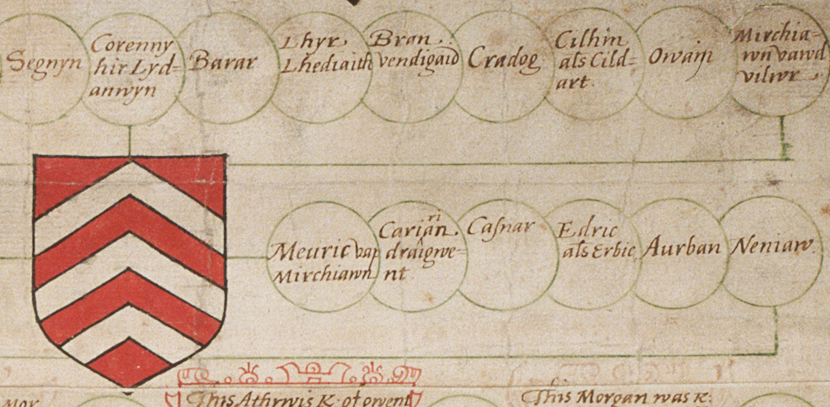 Segnyn
Corenny
hir Lyd=
anwyn
Barar
Lhyr
Lhediaith
Bran
vendigaid
Cradog
Cilhin
als Cild=
art.
Owain
Mirchia=
wn vawd
vilwr
Meuric vap
Mirchiawn
Carian
ri
draigwe=
nt
Casnar
Edric
als Erbic
Aurban
Neniaw
This Athrwis K: of gwent
This Morgan was K:
mor